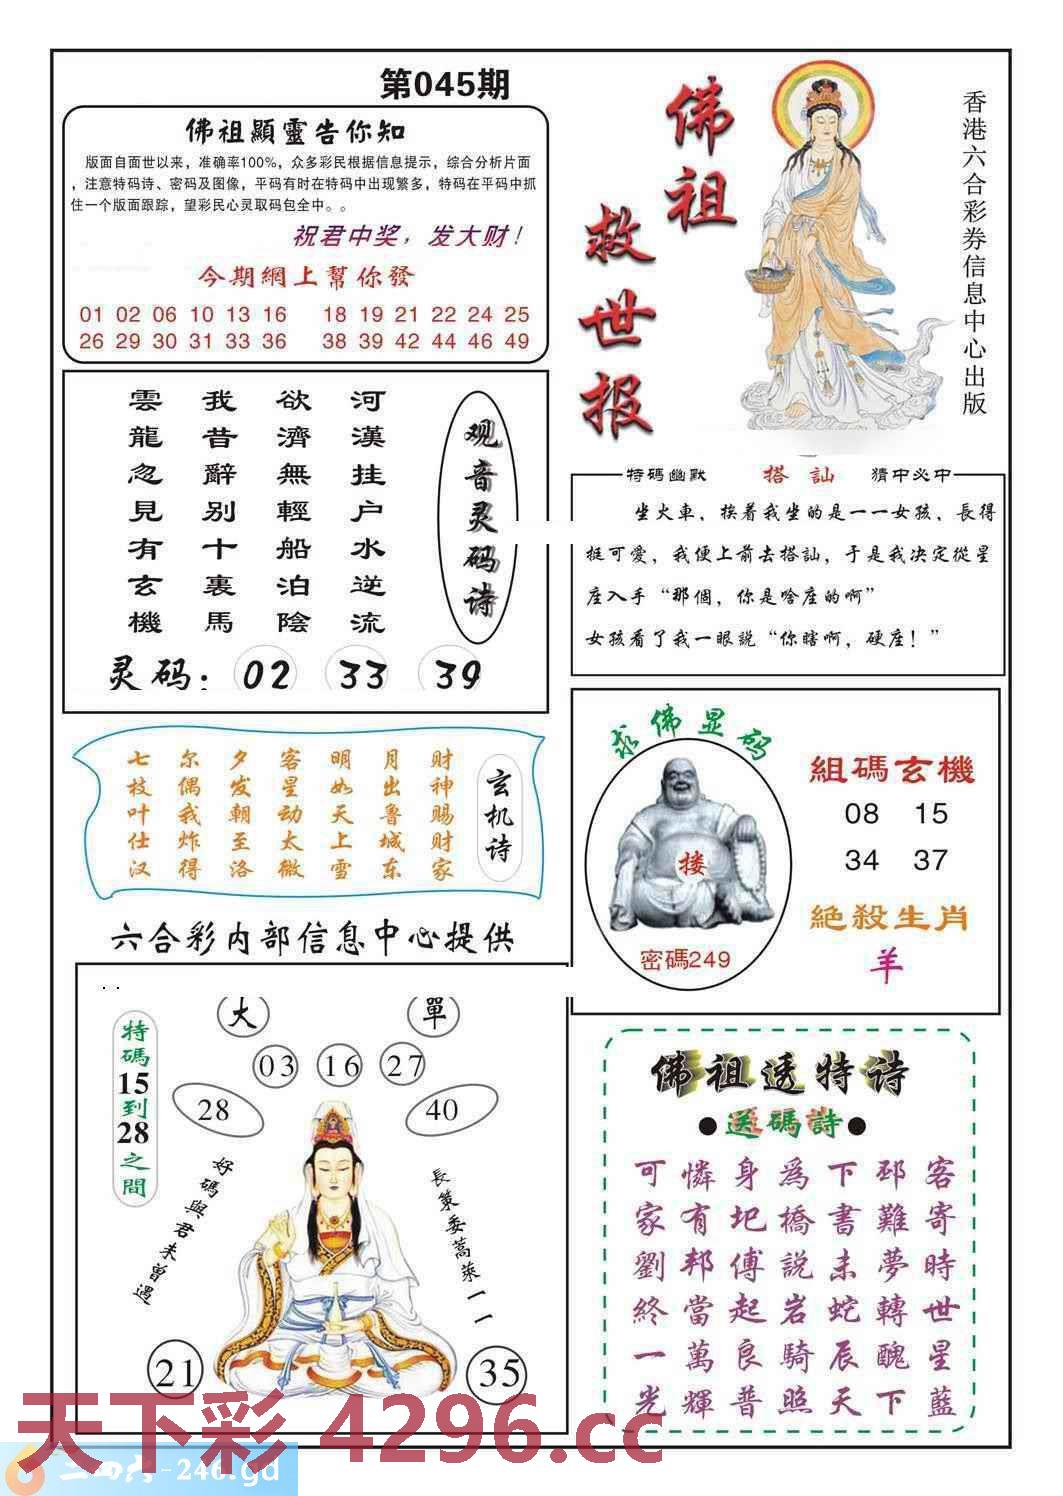 第045期
佛祖顯靈告你知
版面自面世以来，准确率100%，众多彩民根据信息提示，综合分析片面
，注意特码诗、密码及图像，平码有时在特码中出现繁多，特码在平码中抓
住一个版面跟踪，望彩民心灵取码包全中。。
祝君中奖，发大财！
今期網上幫你發
01 02 06 10 13 16 18 19 21 22 24 25
26 29 30 31 33 36 38 39 42 44 46 49
佛祖
救世报
香港六合彩券信息中心出版
观音灵码诗
河漢挂户水逆流
欲濟無輕船泊陰
我昔辭别十裏馬
雲龍忽見有玄機
灵码：02 33 39
特码幽默 搭訕 猜中必中
坐火車，挨着我坐的是一一女孩，長得
挺可愛，我便上前去搭訕，于是我决定從星
座入手“那個，你是啥座的啊”
女孩看了我一眼説“你瞎啊，硬座！”
玄机诗
财神赐财家
月出鲁城东
明如天上雪
客星动太微
夕发朝至洛
尔偶我炸得
七枝叶仕汉
求佛显码
搂
密碼249
組碼玄機
08 15
34 37
絕殺生肖
羊
六合彩内部信息中心提供
大 單
特碼15到28之間
03 16 27
28 40
好碼與君未曾遇
長策委蒿萊一一
21 35
佛祖透特诗
●送碼詩●
客寄時世星藍
邳難夢轉醜下
下書未蛇辰天
爲橋説岩騎照
身圯傅起良普
憐有邦當萬輝
可家劉終一光
天下彩 4296.cc
二四六-246.gd